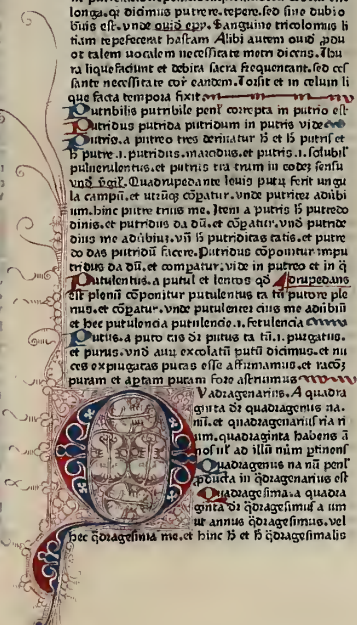 longa.qr dicimus putre re.tepere.sed sine dubio
bĩuis est.vnde ouid epy. Sanguine tricolomus li
tiam tepefecerat hastam Alibi autem ouid ꝓdu
ot talem uocalem necessitate metri dicens. Thu
ra liquefaciunt et debita sacra frequentant.sed ces
sante necessitate cor eandem. Torsit et in celum li
que facta tempora fixit
Putribilis putribile penl̃ correpta in putrio est
Putridus putrida putridum in putris vide
Putris.a putreo tres deriuatur h̃ et h̃ putris et
h̃ putre .i. putridus.marcidus.et putris .i. solubil'
puluerulentus.et putris tra trium in codẽ sensu
vnđ v̾gil. Quadrupedante louis putrẽ ferit ungu
la campũ.et utrũq̃ cõpatur.vnde putriter adũbi
um.hinc putre trius me. Item a putris h̃ putredo
dinis.et putridus da dũ.et cõpatur.vnđ putride
dius me aduibius.vñ h̃ putriditas tatis.et putre
do das putridũ facere. Putridus cõponitur impu
tridus da dũ.et compatur.vide in putreo et in q̃
Putulentus.a putul et lentos qđ Aprupedans
est plenũ cõponitur putulentus ta tũ putore ple
nus.et cõpatur.vnde putulenter cius me aduibiũ
et hec putulencia putulencie .i. fetulencia
Putus.a puto tas dr̃ putus ta tũ.i. purgatus.
et purus.vnđ aurũ excolatũ putũ dicimus.et nu
ces expurgatas putas esse affirmamus.et racõz
putam et aptam putam fore astruimus
Vadragenarius.A quadra
ginta dr̃ quadragenus na.
nũ.et quadragenarius ria ri
um.quadraginta habens ã
nos ul' ad illũ nũm ꝑtinens
Quadragenus na nũ penl'
ꝓducta in q̃dragenarius est
Quadragesima.a quadra
ginta dr̃ q̃dragesimus a um
ut annus q̃dragesimus.vel
hec q̃dragesima me.et hinc h̃ et h̃ q̃dragesimalis